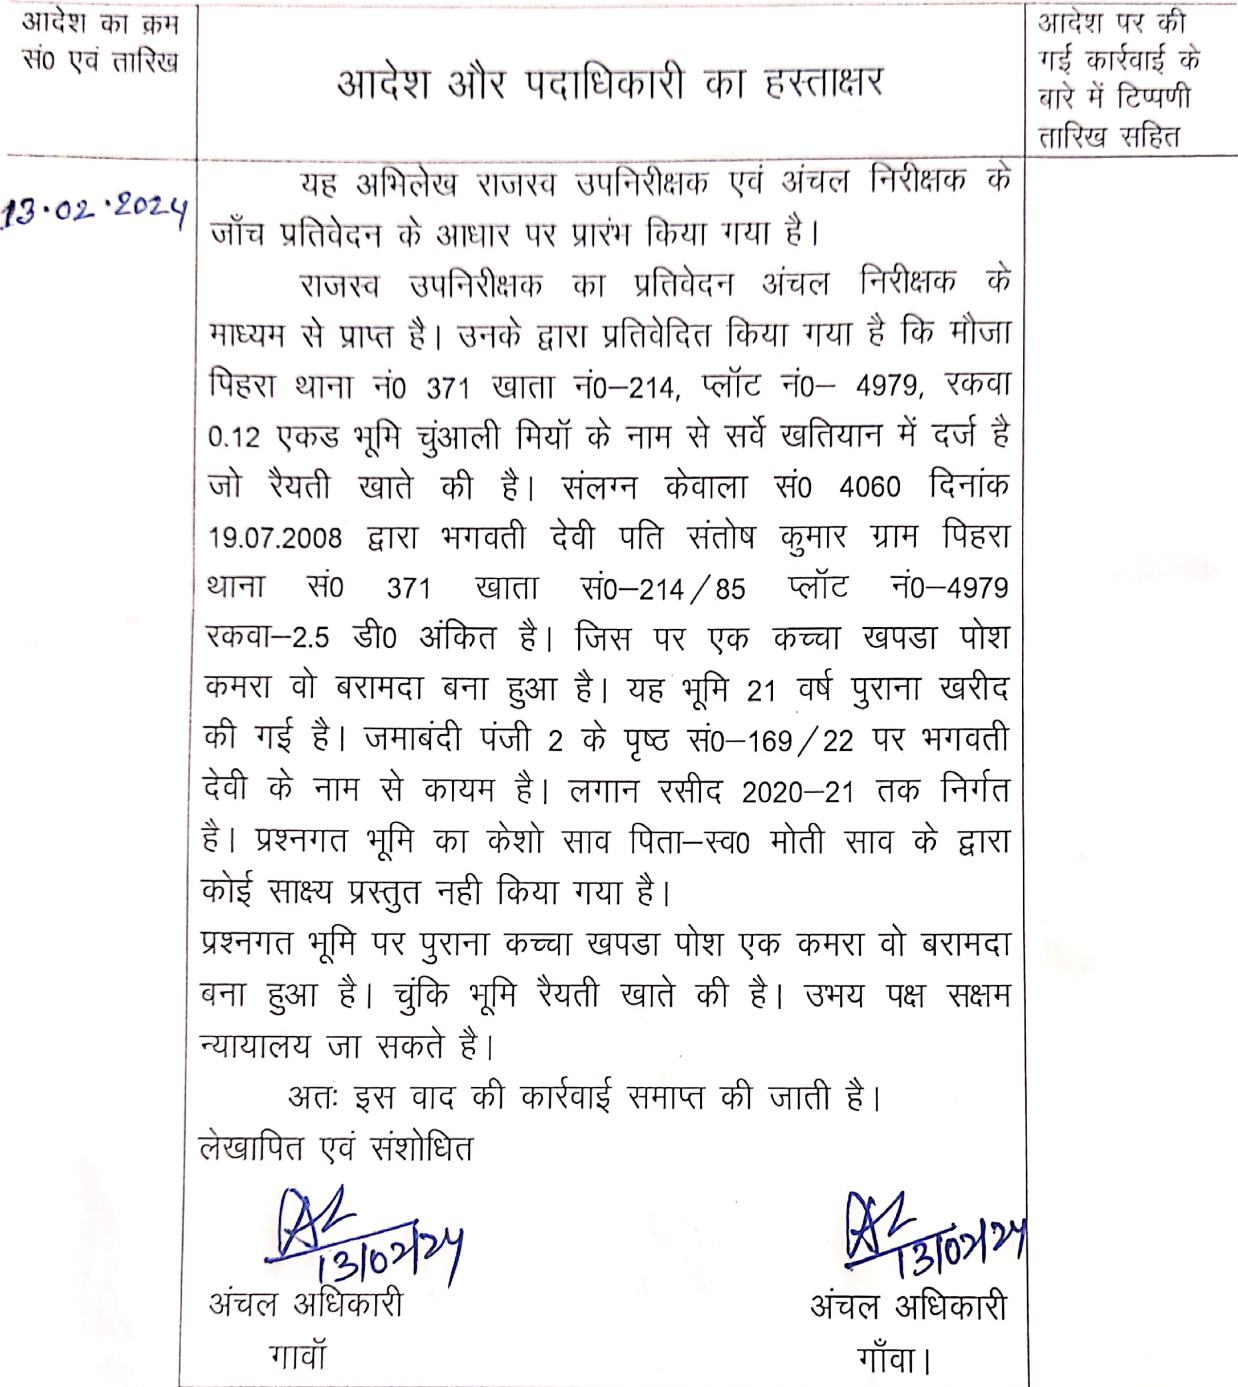 आदेश का क्रम
सं0 एवं तारिख
आदेश और पदाधिकारी का हस्ताक्षर
आदेश पर की
गई कार्रवाई के
बारे में टिप्पणी
तारिख सहित
13.02.2024
यह अभिलेख राजस्व उपनिरीक्षक एवं अंचल निरीक्षक के
जाँच प्रतिवेदन के आधार पर प्रारंभ किया गया है।
राजस्व उपनिरीक्षक का प्रतिवेदन अंचल निरीक्षक के
माध्यम से प्राप्त है। उनके द्वारा प्रतिवेदित किया गया है कि मौजा
पिहरा थाना नं0 371 खाता नं0–214, प्लॉट नं0– 4979, रकवा
0.12 एकड भूमि चुंआली मियॉ के नाम से सर्वे खतियान में दर्ज है
जो रैयती खाते की है। संलग्न केवाला सं0 4060 दिनांक
19.07.2008 द्वारा भगवती देवी पति संतोष कुमार ग्राम पिहरा
थाना सं0 371 खाता सं0–214/85 प्लॉट नं0–4979
रकवा–2.5 डी0 अंकित है। जिस पर एक कच्चा खपडा पोश
कमरा वो बरामदा बना हुआ है। यह भूमि 21 वर्ष पुराना खरीद
की गई है। जमाबंदी पंजी 2 के पृष्ठ सं0–169/22 पर भगवती
देवी के नाम से कायम है। लगान रसीद 2020–21 तक निर्गत
है। प्रश्नगत भूमि का केशो साव पिता–स्व0 मोती साव के द्वारा
कोई साक्ष्य प्रस्तुत नही किया गया है।
प्रश्नगत भूमि पर पुराना कच्चा खपडा पोश एक कमरा वो बरामदा
बना हुआ है। चुंकि भूमि रैयती खाते की है। उभय पक्ष सक्षम
न्यायालय जा सकते है।
अतः इस वाद की कार्रवाई समाप्त की जाती है।
लेखापित एवं संशोधित
13/02/24
13/02/24
अंचल अधिकारी
अंचल अधिकारी
गावॉ
गाँवा।